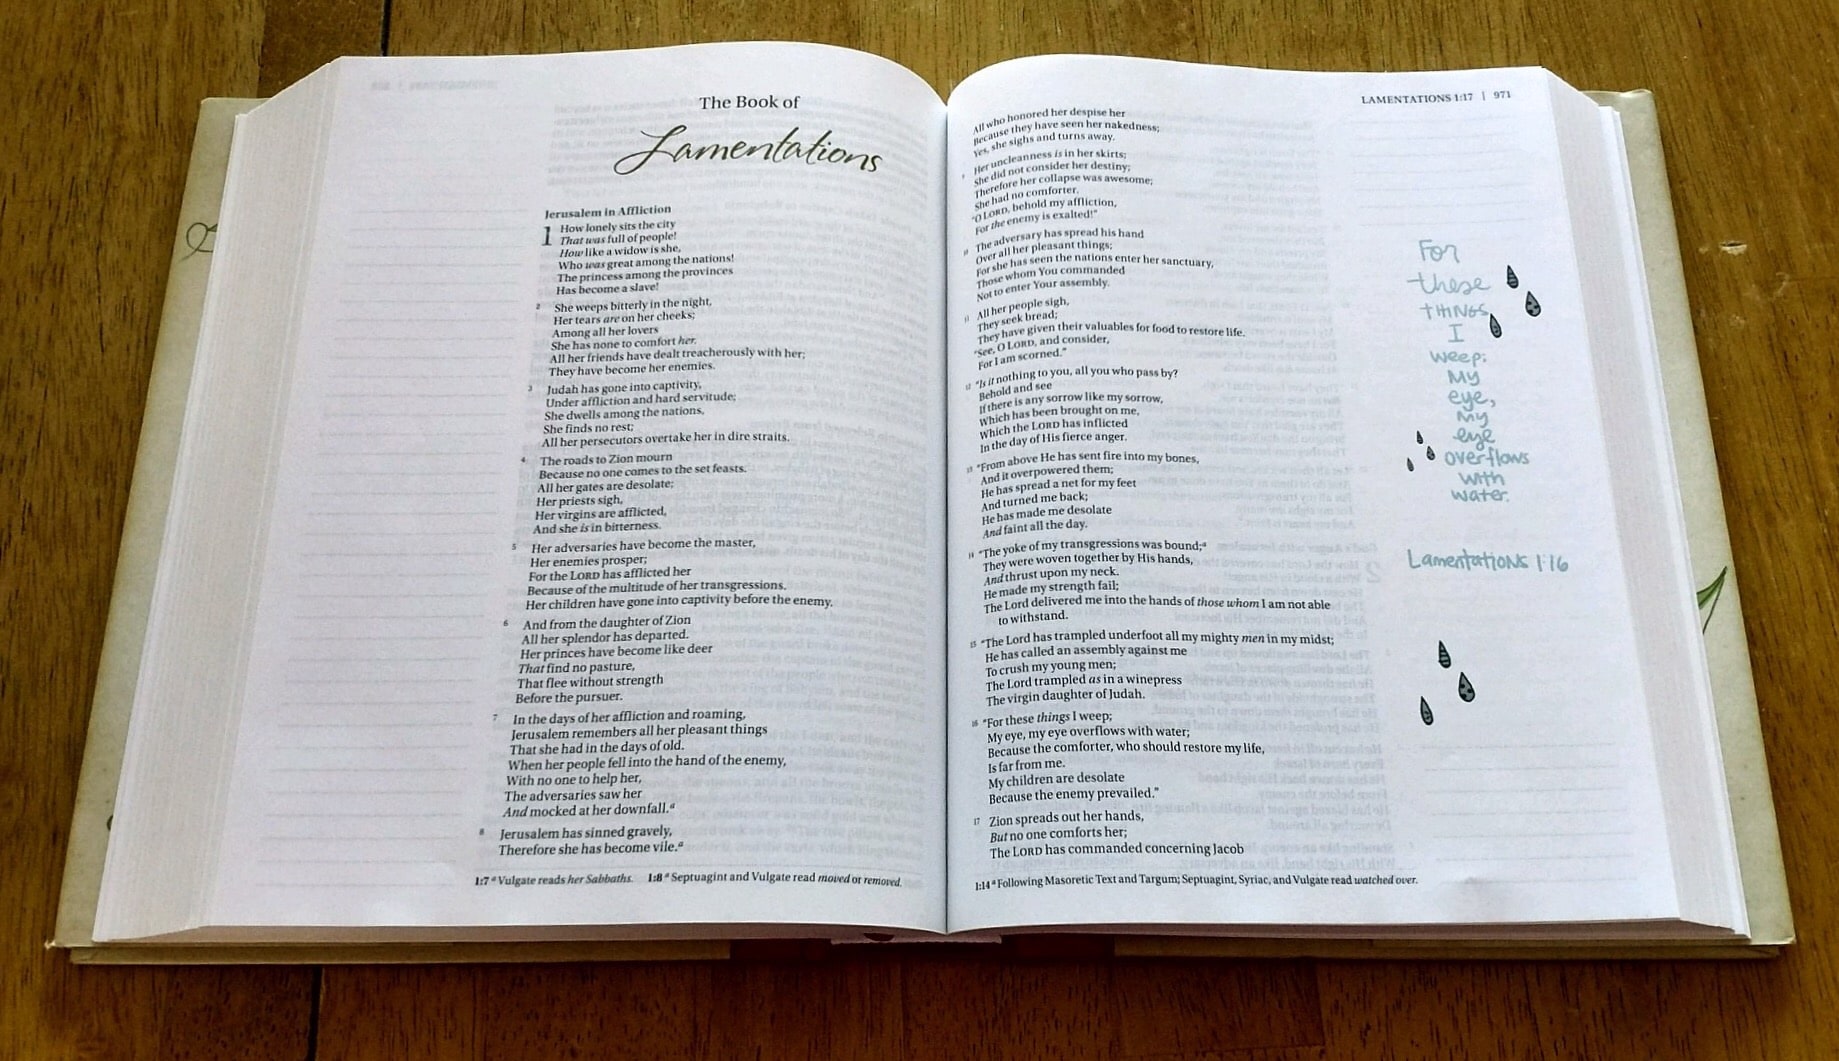 The Book of
Lamentations
Jerusalem in Affliction
1 How lonely sits the city
That was full of people!
How like a widow is she,
Who was great among the nations!
The princess among the provinces
Has become a slave!
2 She weeps bitterly in the night,
Her tears are on her cheeks;
Among all her lovers
She has none to comfort her.
All her friends have dealt treacherously with her;
They have become her enemies.
3 Judah has gone into captivity,
Under affliction and hard servitude;
She dwells among the nations,
She finds no rest;
All her persecutors overtake her in dire straits.
4 The roads to Zion mourn
Because no one comes to the set feasts.
All her gates are desolate;
Her priests sigh,
Her virgins are afflicted,
And she is in bitterness.
5 Her adversaries have become the master,
Her enemies prosper;
For the LORD has afflicted her
Because of the multitude of her transgressions.
Her children have gone into captivity before the enemy.
6 And from the daughter of Zion
All her splendor has departed.
Her princes have become like deer
That find no pasture,
That flee without strength
Before the pursuer.
7 In the days of her affliction and roaming,
Jerusalem remembers all her pleasant things
That she had in the days of old.
When her people fell into the hand of the enemy,
With no one to help her,
The adversaries saw her
And mocked at her downfall.a
8 Jerusalem has sinned gravely,
Therefore she has become vile.a
1:7 a Vulgate reads her Sabbaths. 1:8 a Septuagint and Vulgate read moved or removed.
LAMENTATIONS 1:17 | 971
All who honored her despise her
Because they have seen her nakedness;
Yes, she sighs and turns away.
9 Her uncleanness is in her skirts;
She did not consider her destiny;
Therefore her collapse was awesome;
She had no comforter.
"O LORD, behold my affliction,
For the enemy is exalted!"
10 The adversary has spread his hand
Over all her pleasant things;
For she has seen the nations enter her sanctuary,
Those whom You commanded
Not to enter Your assembly.
11 All her people sigh,
They seek bread;
They have given their valuables for food to restore life.
"See, O LORD, and consider,
For I am scorned."
12 "Is it nothing to you, all you who pass by?
Behold and see
If there is any sorrow like my sorrow,
Which has been brought on me,
Which the LORD has inflicted
In the day of His fierce anger.
13 "From above He has sent fire into my bones,
And it overpowered them;
He has spread a net for my feet
And turned me back;
He has made me desolate
And faint all the day.
14 "The yoke of my transgressions was bound;a
They were woven together by His hands,
And thrust upon my neck.
He made my strength fail;
The Lord delivered me into the hands of those whom I am not able
to withstand.
15 "The Lord has trampled underfoot all my mighty men in my midst;
He has called an assembly against me
To crush my young men;
The Lord trampled as in a winepress
The virgin daughter of Judah.
16 "For these things I weep;
My eye, my eye overflows with water;
Because the comforter, who should restore my life,
Is far from me.
My children are desolate
Because the enemy prevailed."
17 Zion spreads out her hands,
But no one comforts her;
The LORD has commanded concerning Jacob
1:14 a Following Masoretic Text and Targum; Septuagint, Syriac, and Vulgate read watched over.
For
these
THINGS
I
weep;
My
eye,
my
eye
overflows
with
water.
Lamentations 1:16